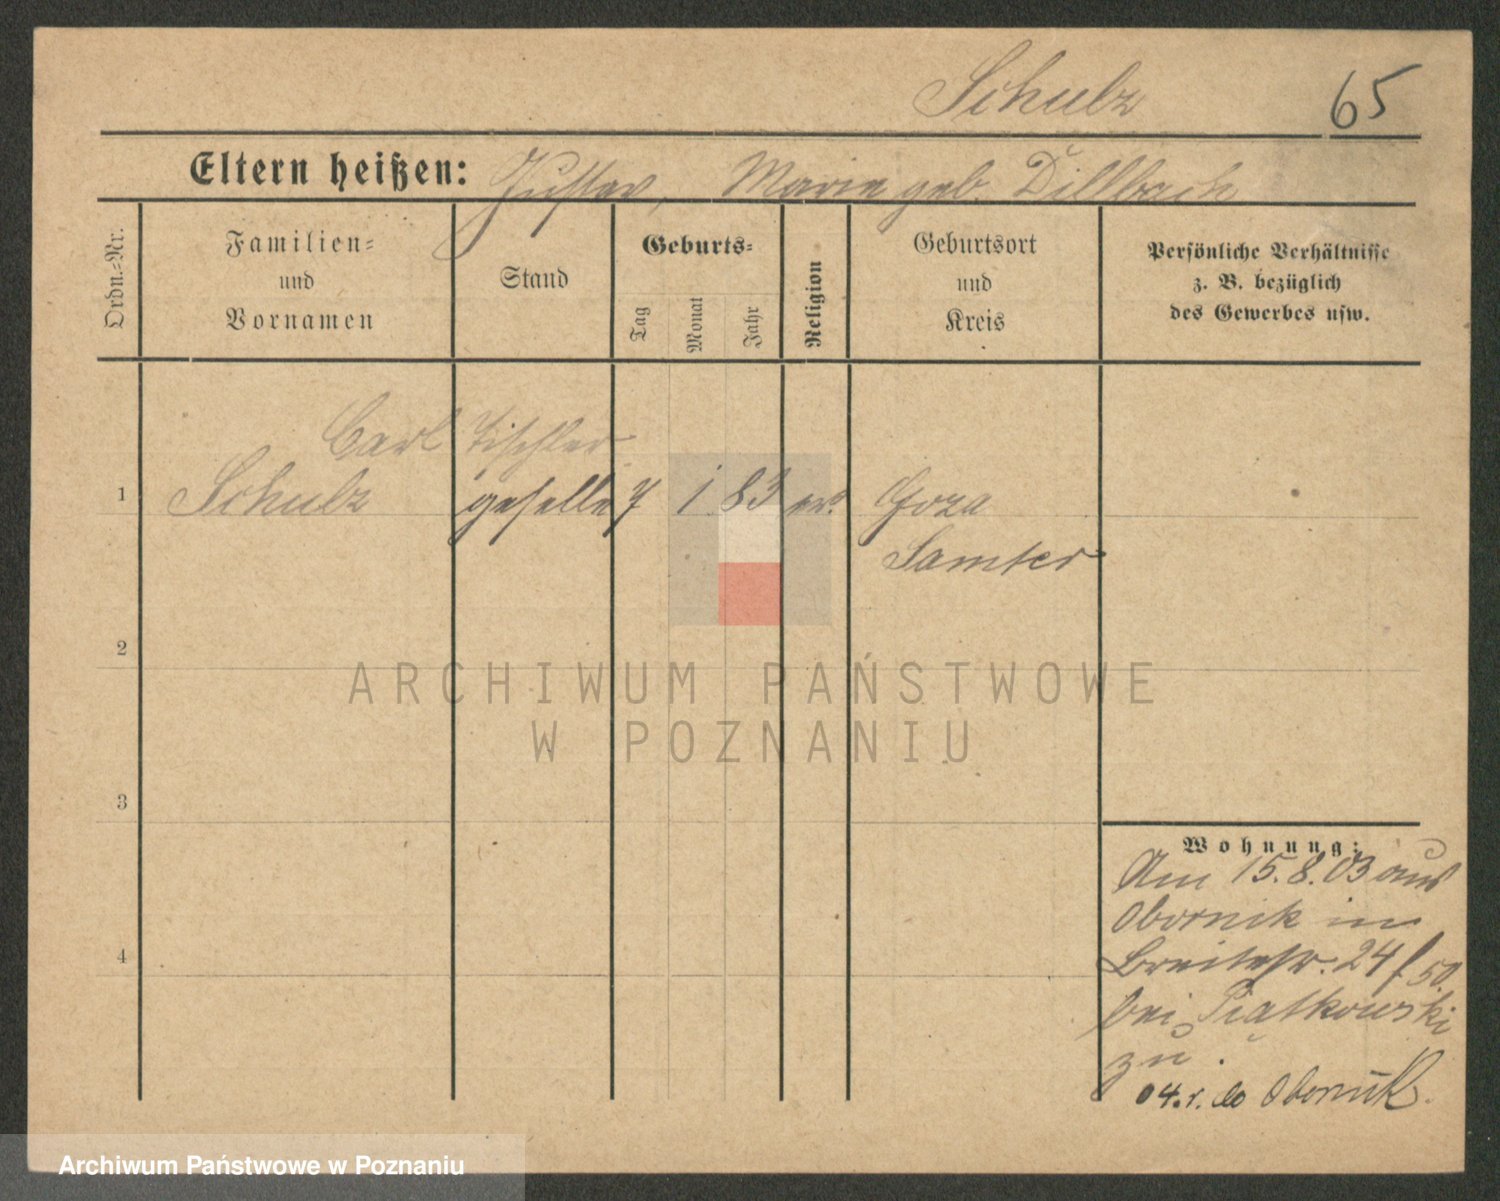 Schulz 65
Eltern heißen: Gustav, Marie geb. Dillbach
Ordn.-Nr.
Familien-
und
Vornamen
Stand
Geburts-
Tag
Monat
Jahr
Religion
Geburtsort
und
Kreis
Persönliche Verhältnisse
z. B. bezüglich
des Gewerbes usw.
Carl Tischler
1 Schulz geselle 7 1 83 ev. Goza
Samter
2
ARCHIWUM PAŃSTWOWE
W POZNANIU
3
Wohnung:
Am 15.8.03 aus
Obornik in
4
Breitestr. 24 f 50
bei Piątkowski
zu.
04. r. do Obornik.
Archiwum Państwowe w Poznaniu